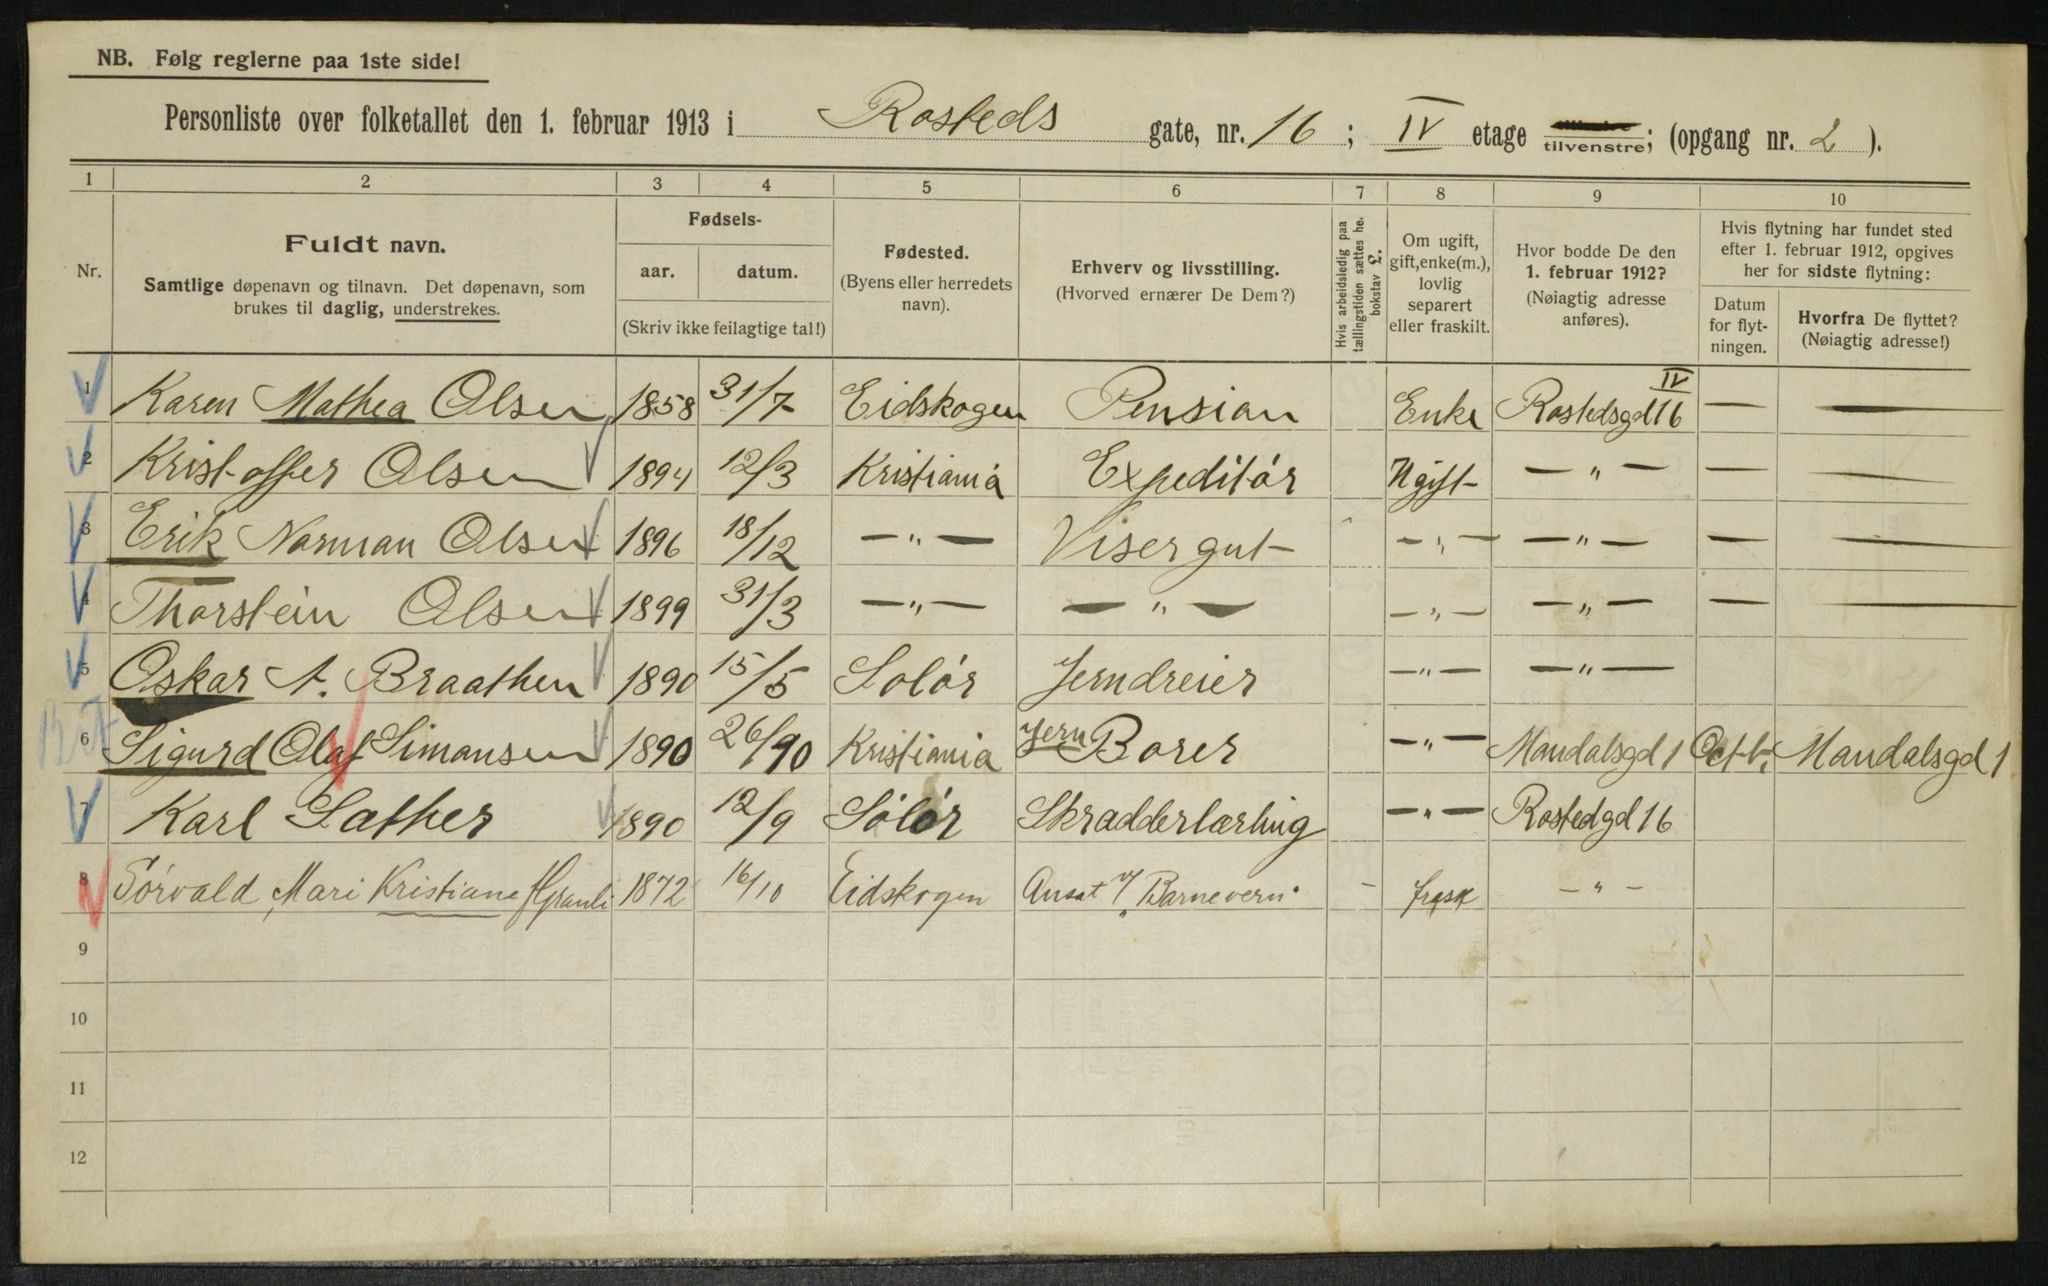 NB. Følg reglerne paa 1ste side!
Personliste over folketallet den 1. februar 1913 i Rosteds gate, nr. 16 ; IV etage tilvenstre; (opgang nr. 2 ).
1 2 3 4 5 6 7 8 9 10
Nr.
Fuldt navn.
Samtlige døpenavn og tilnavn. Det døpenavn, som
brukes til daglig, understrekes.
Fødsels-
aar. datum.
(Skriv ikke feilagtige tal!)
Fødested.
(Byens eller herredets
navn).
Erhverv og livsstilling.
(Hvorved ernærer De Dem?)
Hvis arbeidsledig paa
tællingstiden sættes he.
bokstav L.
Om ugift,
gift, enke(m.),
lovlig
separert
eller fraskilt.
Hvor bodde De den
1. februar 1912?
(Nøiagtig adresse
anføres).
Hvis flytning har fundet sted
efter 1. februar 1912, opgives
her for sidste flytning:
Datum
for flyt-
ningen.
Hvorfra De flyttet?
(Nøiagtig adresse!)
1 Karen Mathea Olsen 1858 31/7 Eidskogen Pension Enke Rostedsgd 16 IV — —
2 Kristoffer Olsen 1894 12/3 Kristiania Expeditór Ugift — „ — — —
3 Erik Norman Olsen 1896 18/12 — „ — Visergut — „ — — „ — — —
4 Thorstein Olsen 1899 31/3 — „ — — „ — — „ — — „ — — —
5 Oskar A. Braathen 1890 15/5 Solór Jerndreier — „ — — „ —
6 Sigurd Olaf Simonsen 1890 26/90 Kristiania Jern Borer — „ — Mandalsgd 1 Octb. Mandalsgd 1
7 Karl Sather 1890 12/9 Sólór Skradderlærling — „ — Rostedgd 16
8 Mari Kristiane 1872 16/10 Eidskogen Ansat v/ „Barnevern" — frask — „ —
9
10
11
12